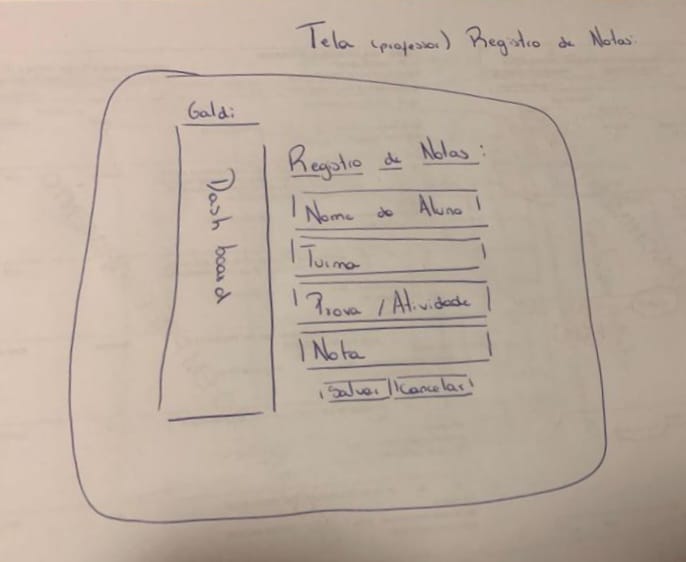 Tela (professor) Registro de Notas:
Galdi
Dash board
Registro de Notas:
Nome do Aluno
Turma
Prova / Atividade
Nota
Salvar Cancelar